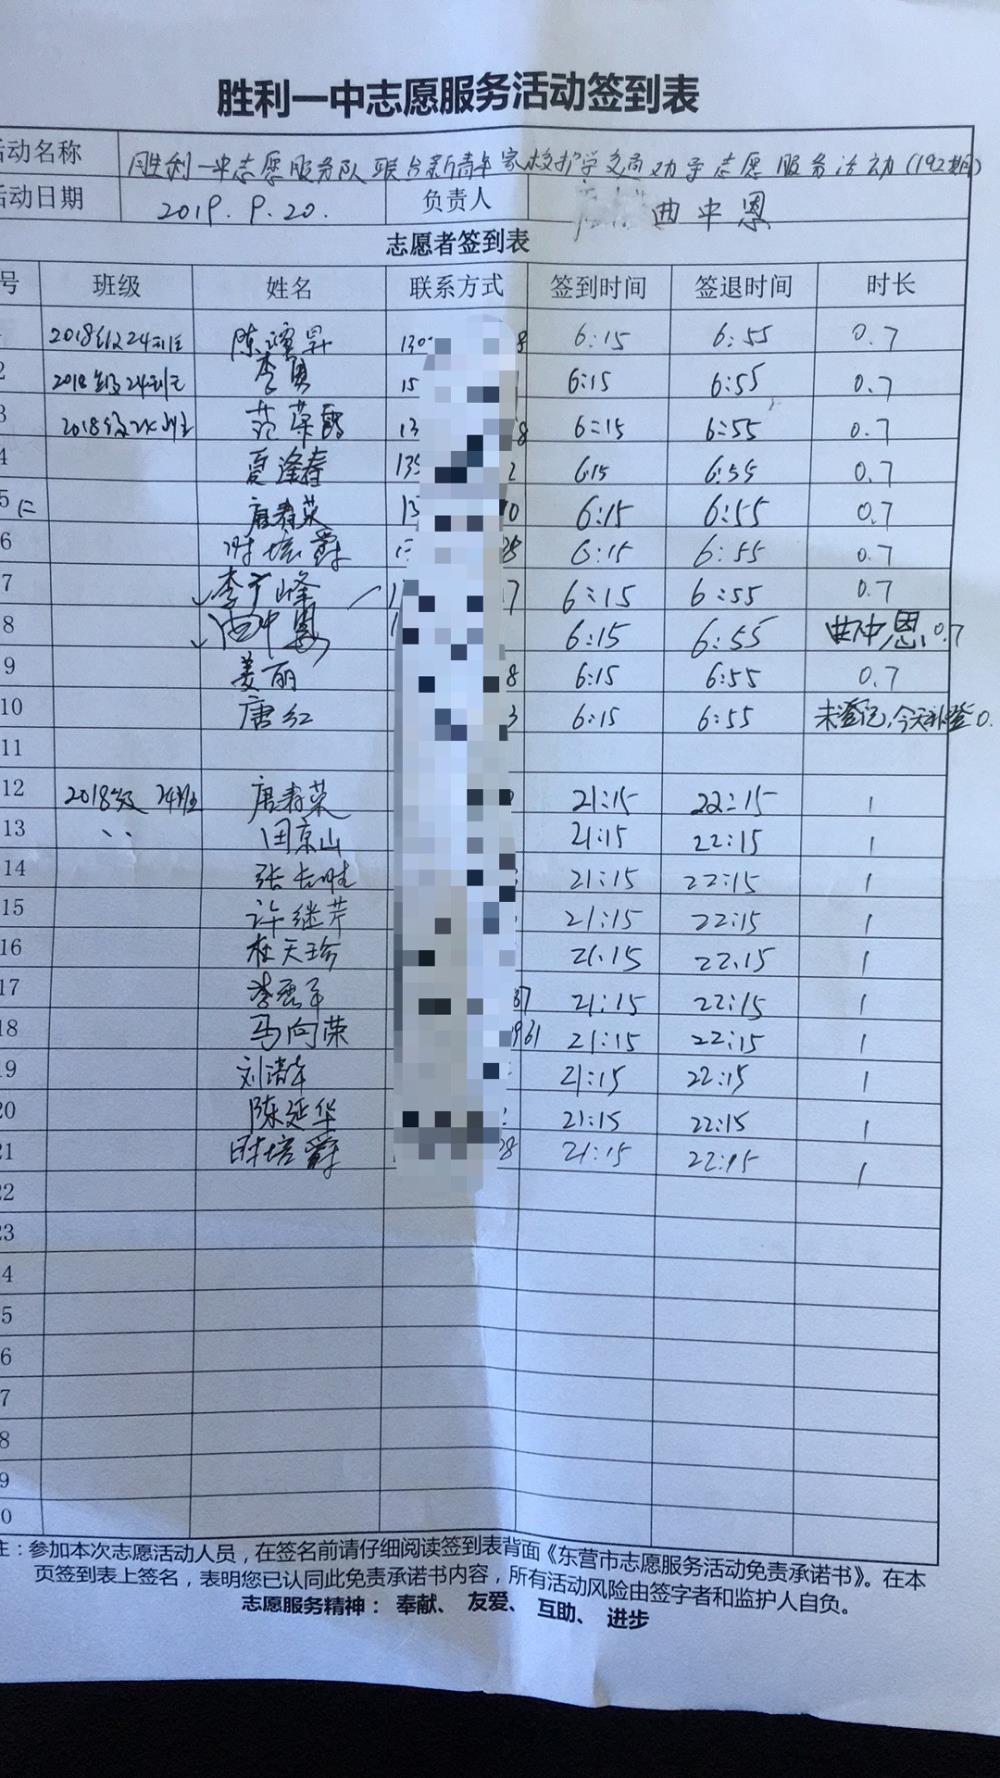 胜利一中志愿服务活动签到表
活动名称 胜利一中志愿服务队联合新青年家校护学交高劝导志愿服务活动(192期)
活动日期 2019.9.20. 负责人 曲中恩
志愿者签到表
号 班级 姓名 联系方式 签到时间 签退时间 时长
2018级24班 陈 昇 130 8 6:15 6:55 0.7
2 2018级24班 李勇 15 6:15 6:55 0.7
3 2018级24班 范荣霞 13 8 6:15 6:55 0.7
4 夏逢春 135 2 6:15 6:55 0.7
5 唐春荣 15 0 6:15 6:55 0.7
6 时培爵 28 6:15 6:55 0.7
7 李广峰 1 7 6:15 6:55 0.7
8 曲中恩 1 6:15 6:55 曲中恩 0.7
9 姜丽 8 6:15 6:55 0.7
10 唐红 3 6:15 6:55 未登记,今天补登0.
11
12 2018级 24班 唐春荣 21:15 22:15 1
13 、、 田京山 21:15 22:15 1
14 张志胜 21:15 22:15 1
15 许继芹 21:15 22:15 1
16 杜天珍 21:15 22:15 1
17 李 37 21:15 22:15 1
18 马向荣 961 21:15 22:15 1
19 刘清华 21:15 22:15 1
20 陈延华 21:15 22:15 1
21 时培爵 28 21:15 22:15 1
22
23
4
5
6
7
8
9
0
注:参加本次志愿活动人员,在签名前请仔细阅读签到表背面《东营市志愿服务活动免责承诺书》。在本
页签到表上签名,表明您已认同此免责承诺书内容,所有活动风险由签字者和监护人自负。
志愿服务精神: 奉献、 友爱、 互助、 进步